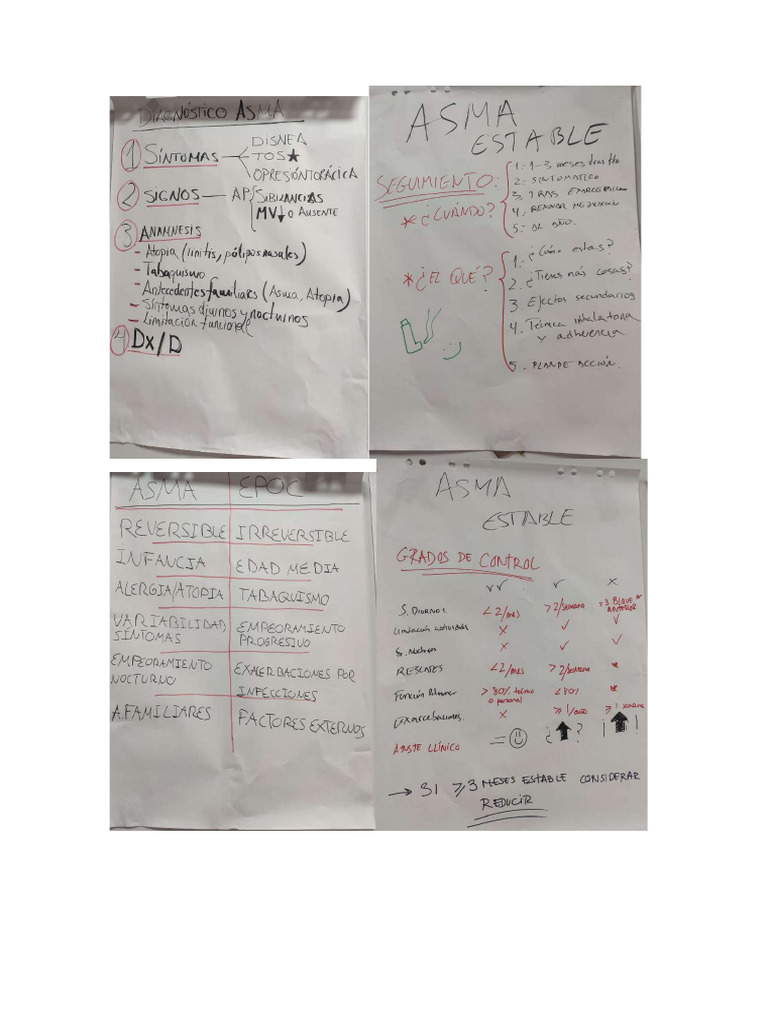 DIAGNÓSTICO ASMA
1 SÍNTOMAS
DISNEA
TOS★
OPRESIÓN TORÁCICA
2 SIGNOS — AP
SIBILANCIAS
MV↓ o AUSENTE
3 ANAMNESIS
- Atopia (rinitis, pólipos nasales)
- Tabaquismo
- Antecedentes familiares (Asma, Atopia)
- Síntomas diurnos y nocturnos
- Limitación funcional
4 Dx/D
ASMA
ESTABLE
SEGUIMIENTO:
* ¿CUÁNDO?
1. 1-3 meses
2. SINTOMÁTICO
3. TRAS
4. 
5. AL AÑO.
* ¿EL QUÉ?
1. ¿Cómo estas?
2. ¿Tienes más cosas?
3. Efectos secundarios
4. Técnica inhalatoria
y adherencia
5. PLAN DE ACCIÓN.
ASMA EPOC
REVERSIBLE IRREVERSIBLE
INFANCIA EDAD MEDIA
ALERGIA/ATOPIA TABAQUISMO
VARIABILIDAD SÍNTOMAS EMPEORAMIENTO PROGRESIVO
EMPEORAMIENTO NOCTURNO EXACERBACIONES POR INFECCIONES
A. FAMILIARES FACTORES EXTERNOS
ASMA
ESTABLE
GRADOS DE CONTROL
✓✓ ✓ ×
S. DIURNOS. <2/mes >2/semana
Limitación actividades × ✓ ✓
S. Nocturnos × ✓ ✓
RESCATES <2/mes >2/semana *
Función Pulmonar >80% teórico o personal <80% *
Exacerbaciones. × ≥1/año ≥1 semana
AJUSTE CLÍNICO = ☺ ¿↑? ¡↑!
→ SI ≥3 MESES ESTABLE CONSIDERAR
REDUCIR